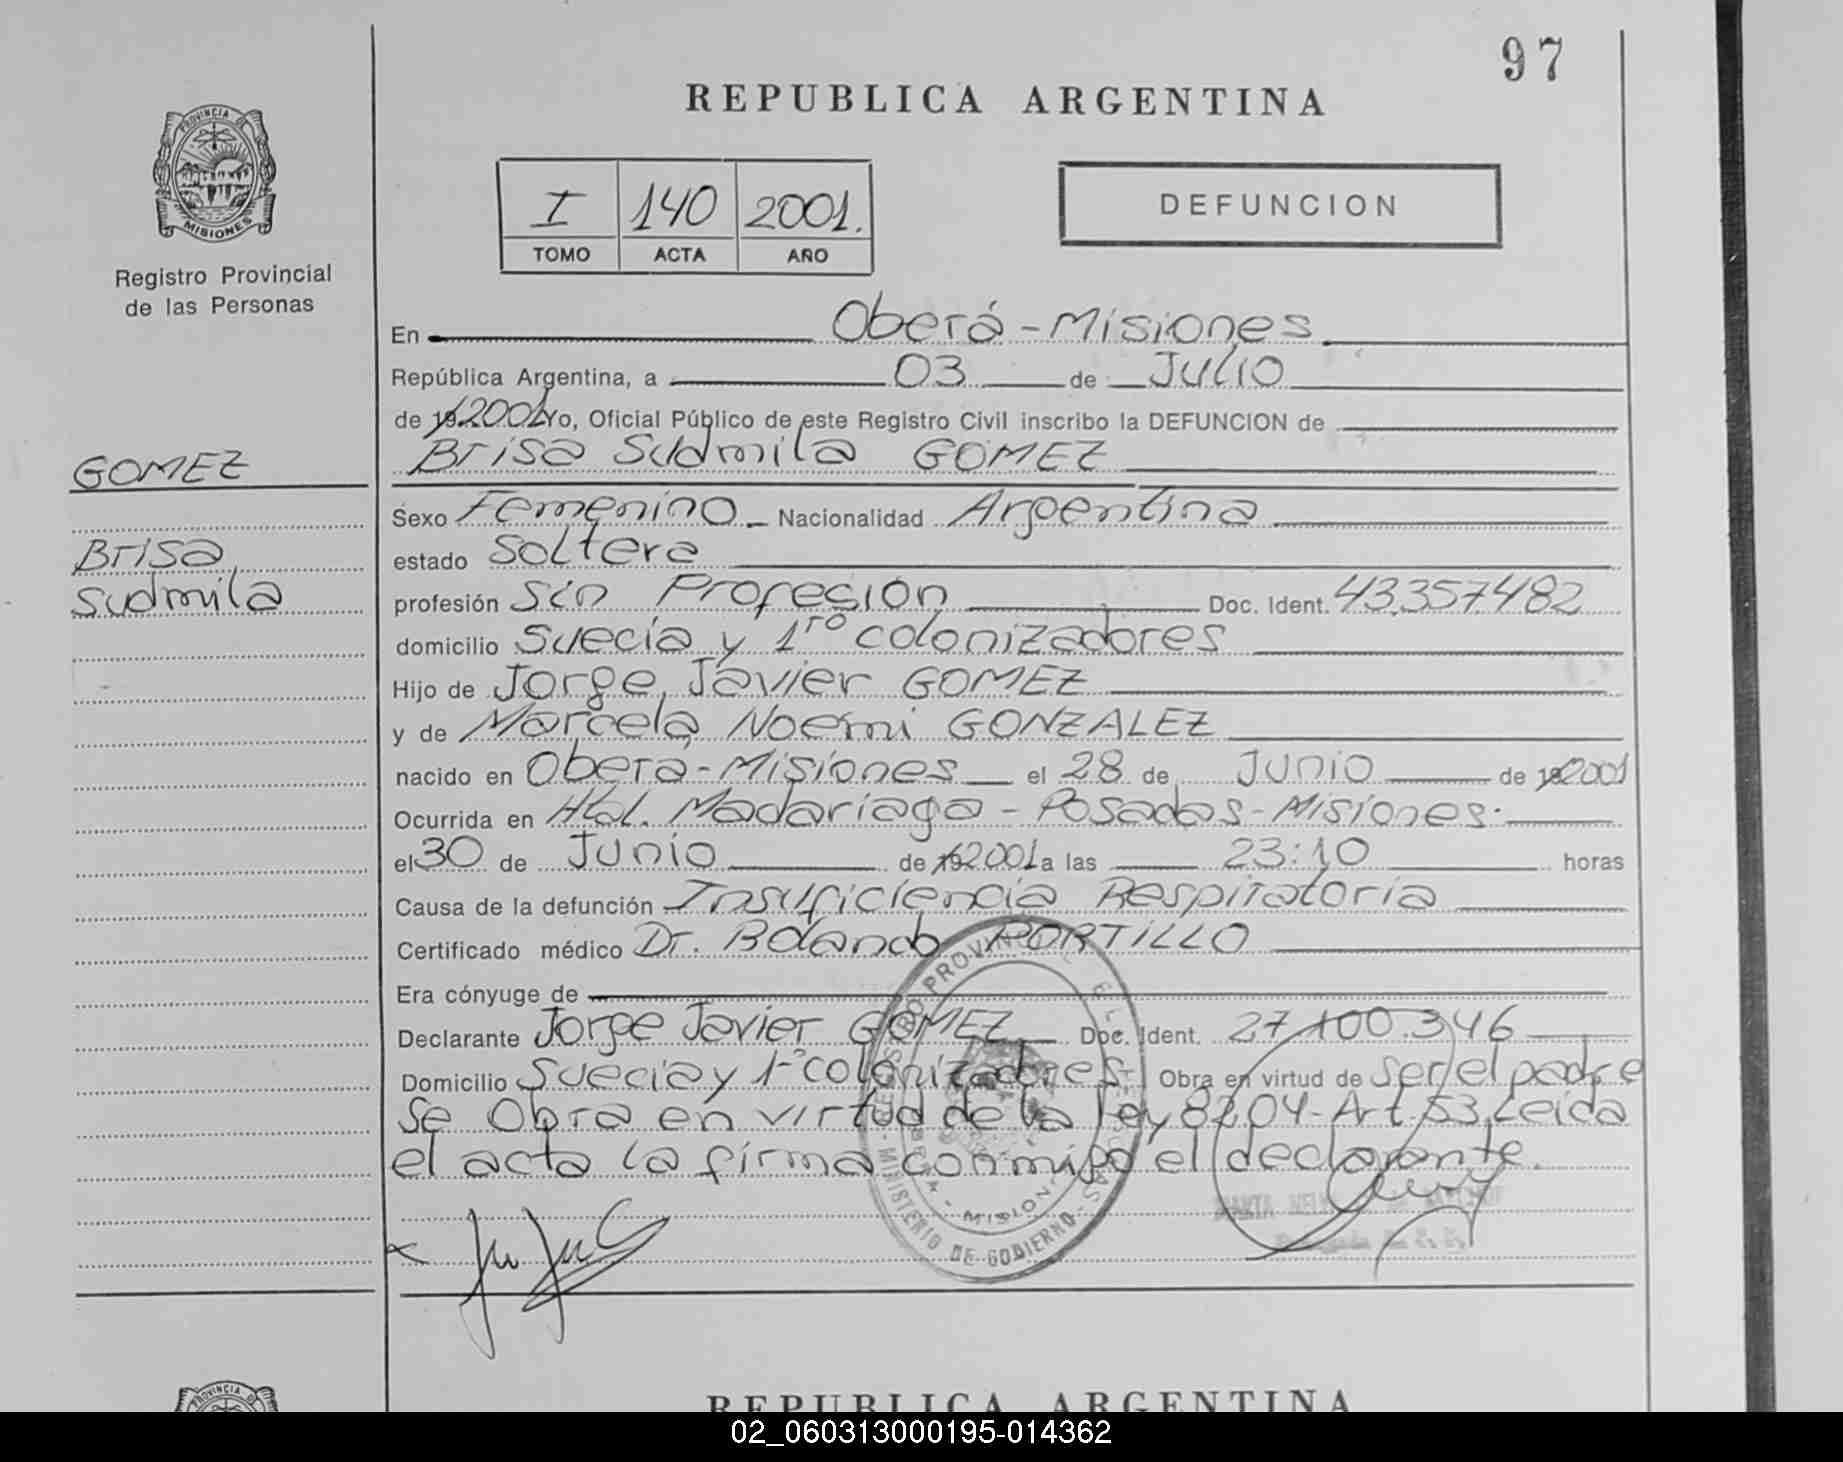 97
REPUBLICA ARGENTINA
PROVINCIA DE
MISIONES
Registro Provincial
de las Personas
I 140 2001.
TOMO ACTA AÑO
DEFUNCION
En Oberá - Misiones
República Argentina, a 03 de Julio
de 19 2001 Yo, Oficial Público de este Registro Civil inscribo la DEFUNCION de
GOMEZ
Brisa Sudmila GOMEZ
Sexo Femenino Nacionalidad Argentina
Brisa
estado Soltera
Sudmila
profesión Sin Profesion Doc. Ident. 43.357482
domicilio Suecia y 1ro colonizadores
Hijo de Jorge Javier GOMEZ
y de Marcela Noemi GONZALEZ
nacido en Obera - Misiones el 28 de Junio de 19 2001
Ocurrida en Hbl. Madariaga - Posadas - Misiones.
el 30 de Junio de 19 2001 a las 23:10 horas
Causa de la defunción Insuficiencia Respiratoria
Certificado médico Dr. PORTILLO
Era cónyuge de
Declarante Jorge Javier GOMEZ Doc. Ident. 27.100.346
Domicilio Suecia y 1-º colonizadores Obra en virtud de Ser el padre
Se Obra en virtud de la ley 8204 - Art. 53. Leida
el acta la firma conmigo el declarante.
MINISTERIO DE GOBIERNO
REPUBLICA ARGENTINA
02_060313000195-014362